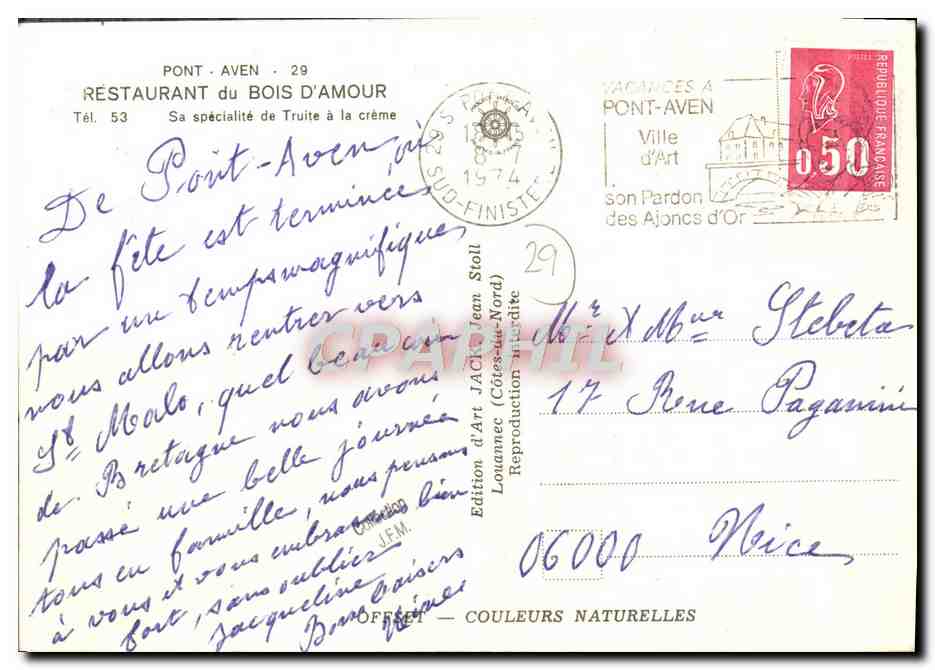 PONT - AVEN - 29
RESTAURANT du BOIS D'AMOUR
Tél. 53 Sa spécialité de Truite à la crème
De Pont-Aven, où
la fête est terminée
par un temps magnifique,
nous allons rentrer vers
St Malo, quel beau coin
de Bretagne nous avons
passé une belle journée
tous en famille, nous pensons
à vous et vous embrassons bien
fort, sans oublier
Jacqueline
Bons baisers
29 S PONT-AVEN
18 H 15
8 - 7
1974
SUD-FINISTERE
VACANCES A
PONT-AVEN
Ville
d'Art
son Pardon
des Ajoncs d'Or
POSTES
REPUBLIQUE FRANÇAISE
0,50
29
Edition d'Art JACK Jean Stoll
Louannec (Côtes-du-Nord)
Reproduction interdite
CPAPHIL
Mr X Mme Stebeta
17 Rue Paganini
06000 Nice
Collection
J.F.M.
OFFSET — COULEURS NATURELLES